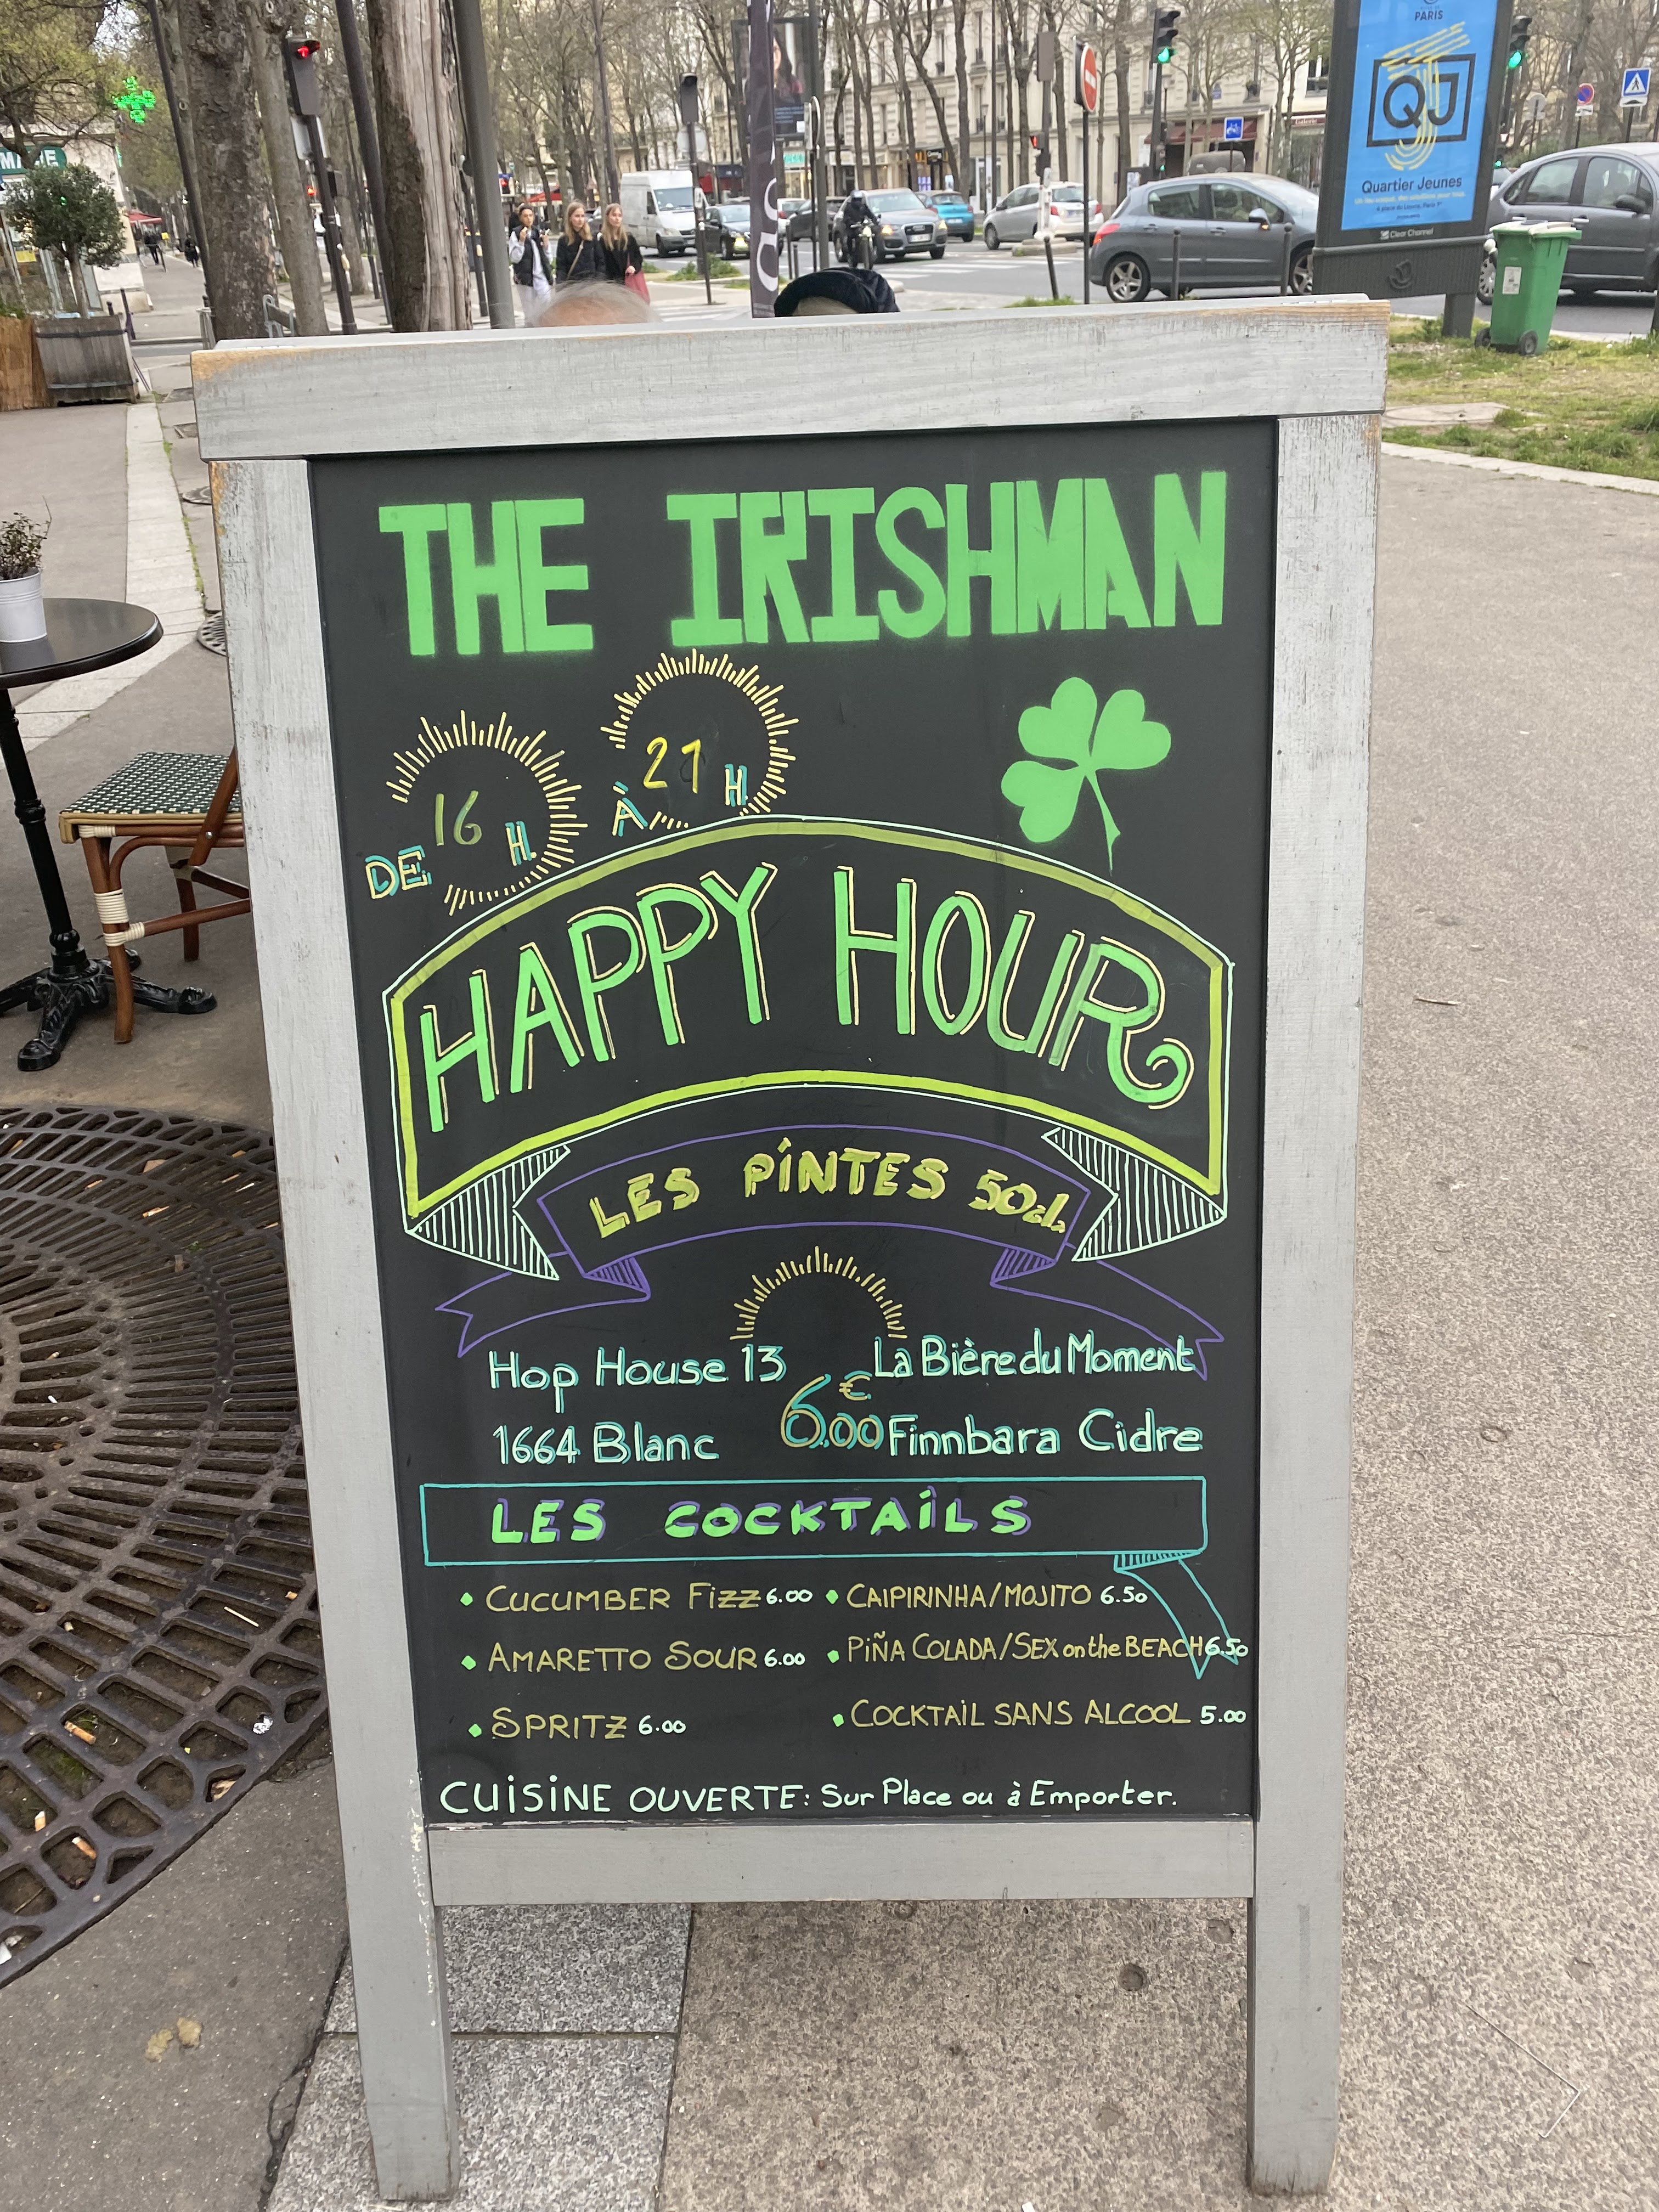 PARIS
QJ
Quartier Jeunes
Clear Channel
THE IRISHMAN
DE 16 H À 21 H
HAPPY HOUR
LES PINTES 50cl.
Hop House 13 La Bière du Moment
6.00€
1664 Blanc Finnbara Cidre
LES COCKTAILS
• CUCUMBER FIZZ 6.00 • CAIPIRINHA/MOJITO 6.50
• AMARETTO SOUR 6.00 • PIÑA COLADA/SEX on the BEACH 6.50
• SPRITZ 6.00 • COCKTAIL SANS ALCOOL 5.00
CUISINE OUVERTE: Sur Place ou à Emporter.